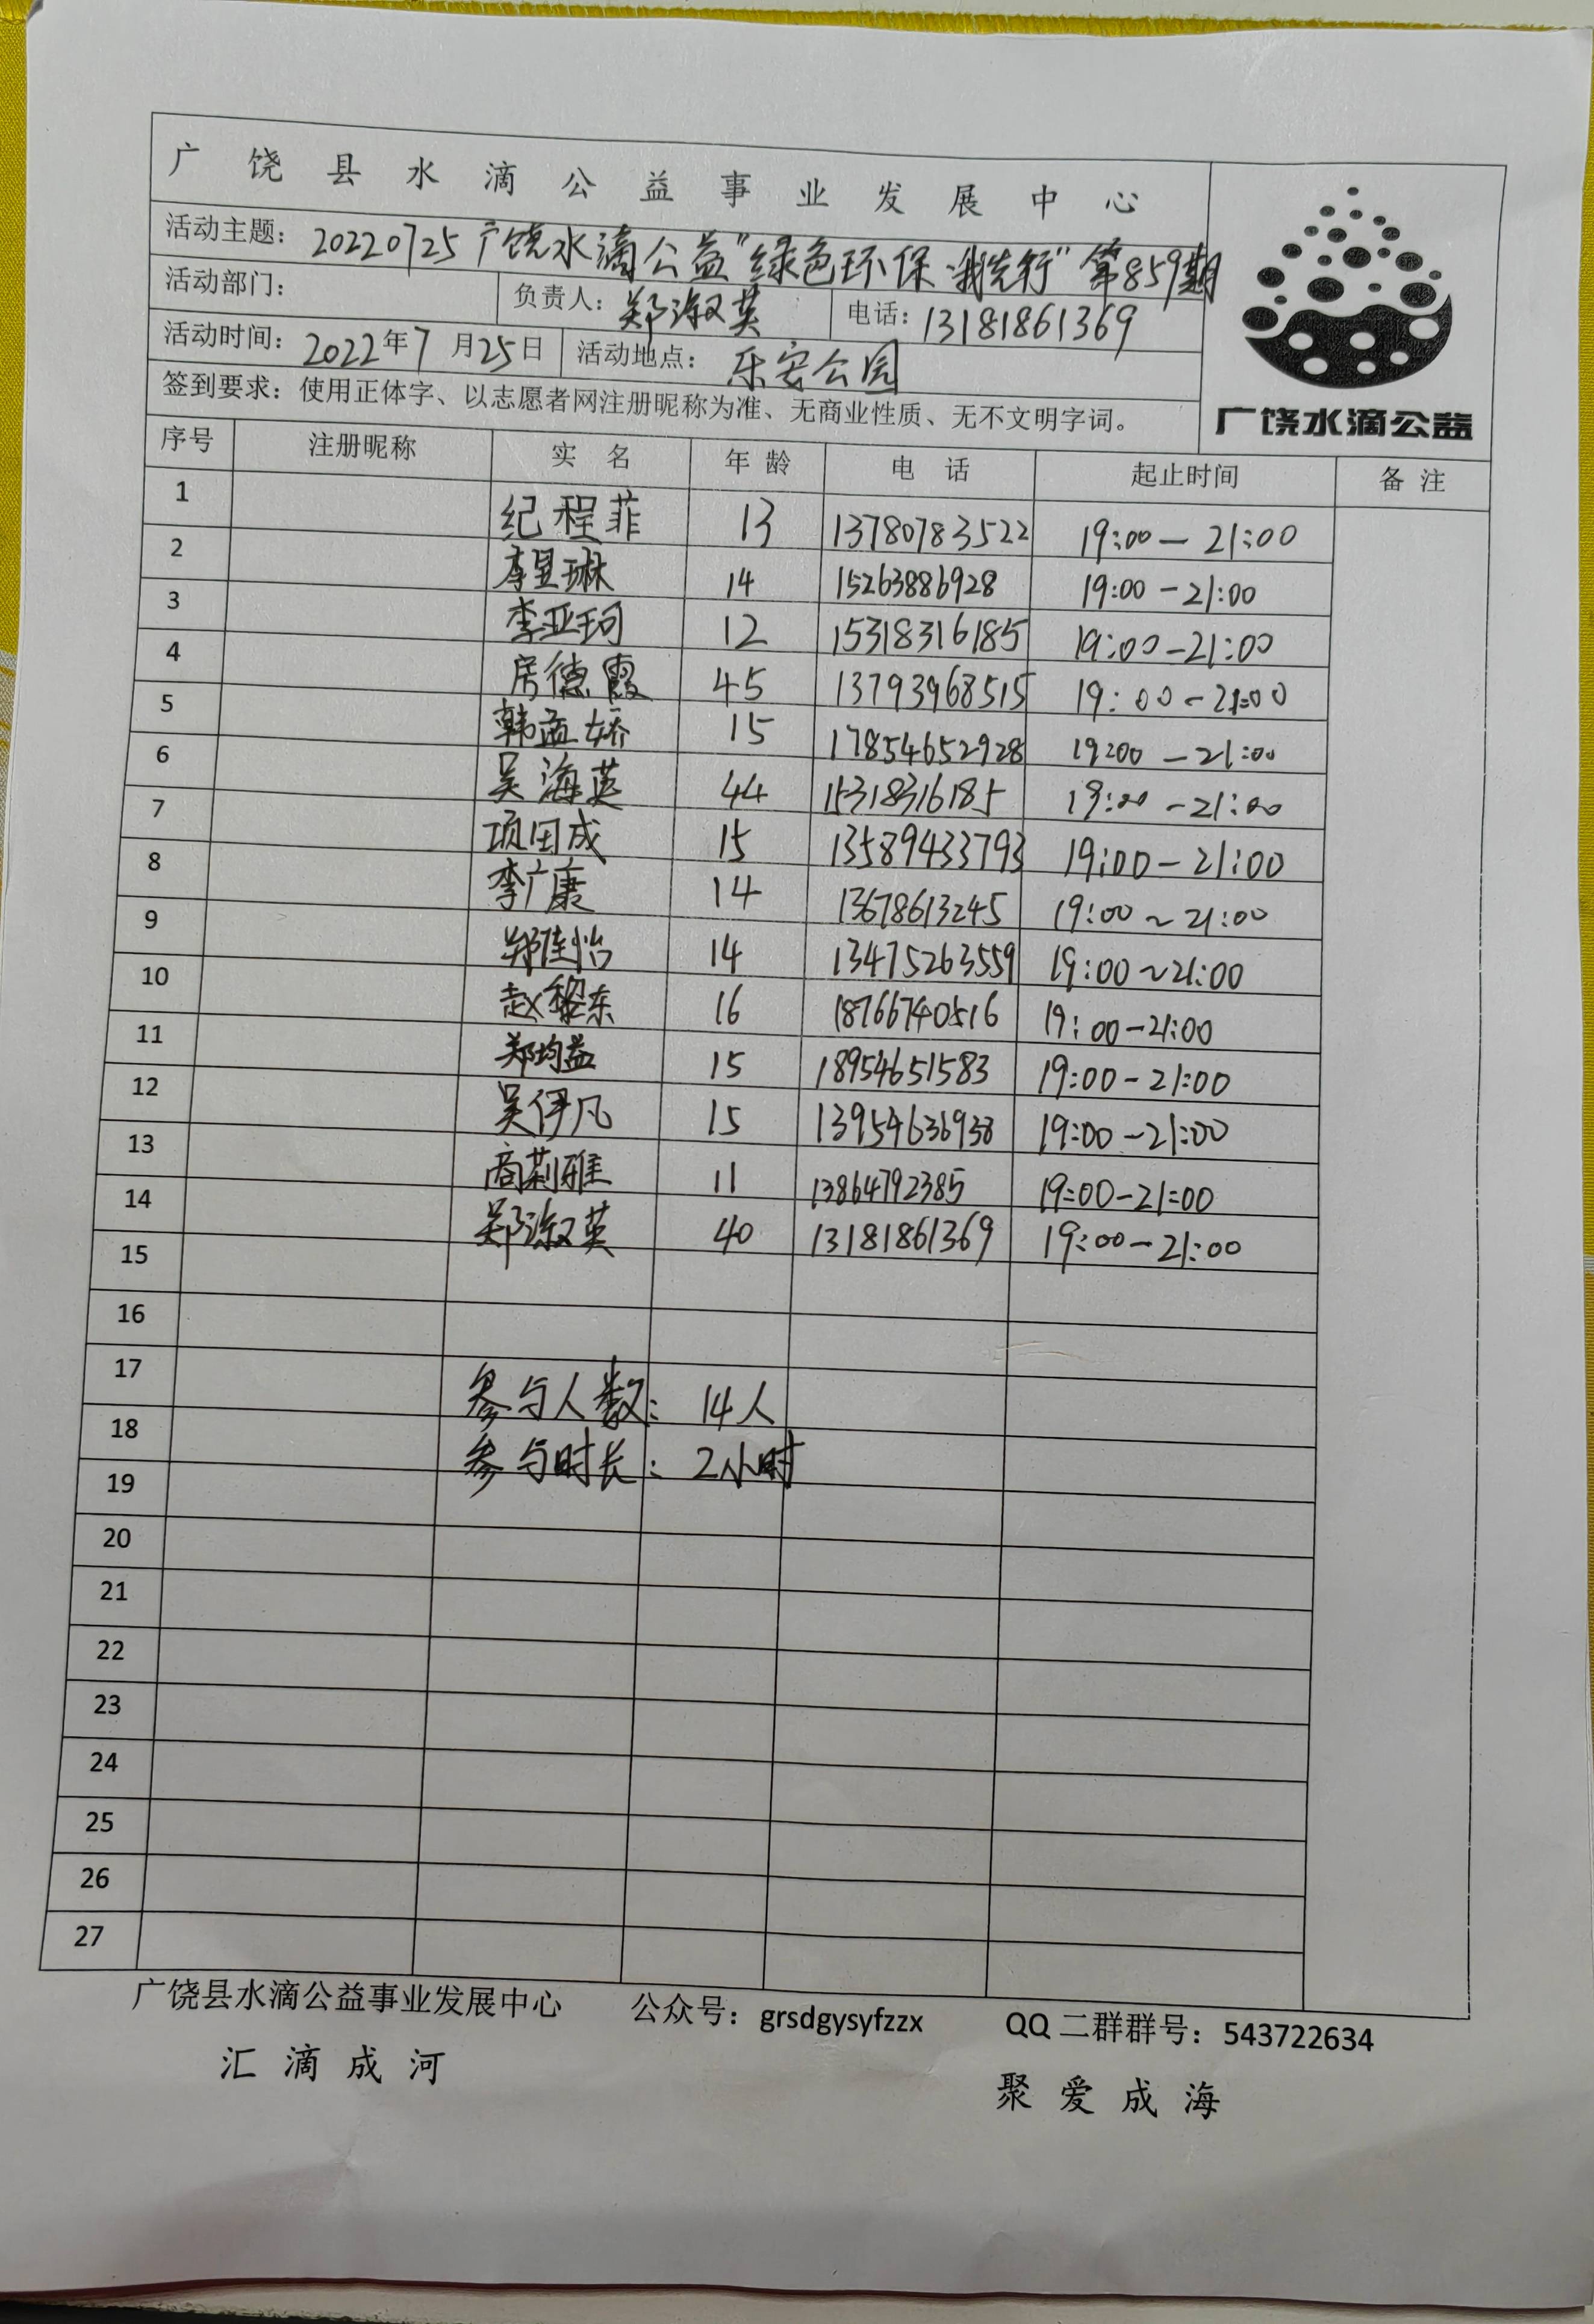 广饶县水滴公益事业发展中心
活动主题：20220725广饶水滴公益"绿色环保·我先行"第859期
活动部门： 负责人：郑淑英 电话：13181861369
活动时间：2022年7月25日 活动地点：乐安公园
签到要求：使用正体字、以志愿者网注册昵称为准、无商业性质、无不文明字词。
广饶水滴公益
序号 注册昵称 实名 年龄 电话 起止时间 备注
1 纪程菲 13 13780783522 19:00—21:00
2 李昱琳 14 15263886928 19:00-21:00
3 李亚珂 12 15318316185 19:00-21:00
4 房德霞 45 13793968515 19:00-21:00
5 韩孟娇 15 17854652928 19:00—21:00
6 吴海英 44 15318316185 19:00-21:00
7 项田成 15 13589433793 19:00-21:00
8 李广康 14 13678613245 19:00~21:00
9 郑佳怡 14 13475263559 19:00~21:00
10 赵黎东 16 18766740516 19:00-21:00
11 郑均益 15 18954651583 19:00-21:00
12 吴伊凡 15 13954636938 19:00-21:00
13 商莉雅 11 13864792385 19:00-21:00
14 郑淑英 40 13181861369 19:00-21:00
15
16
17 参与人数：14人
18 参与时长：2小时
19
20
21
22
23
24
25
26
27
广饶县水滴公益事业发展中心 公众号：grsdgysyfzzx QQ二群群号：543722634
汇滴成河 聚爱成海